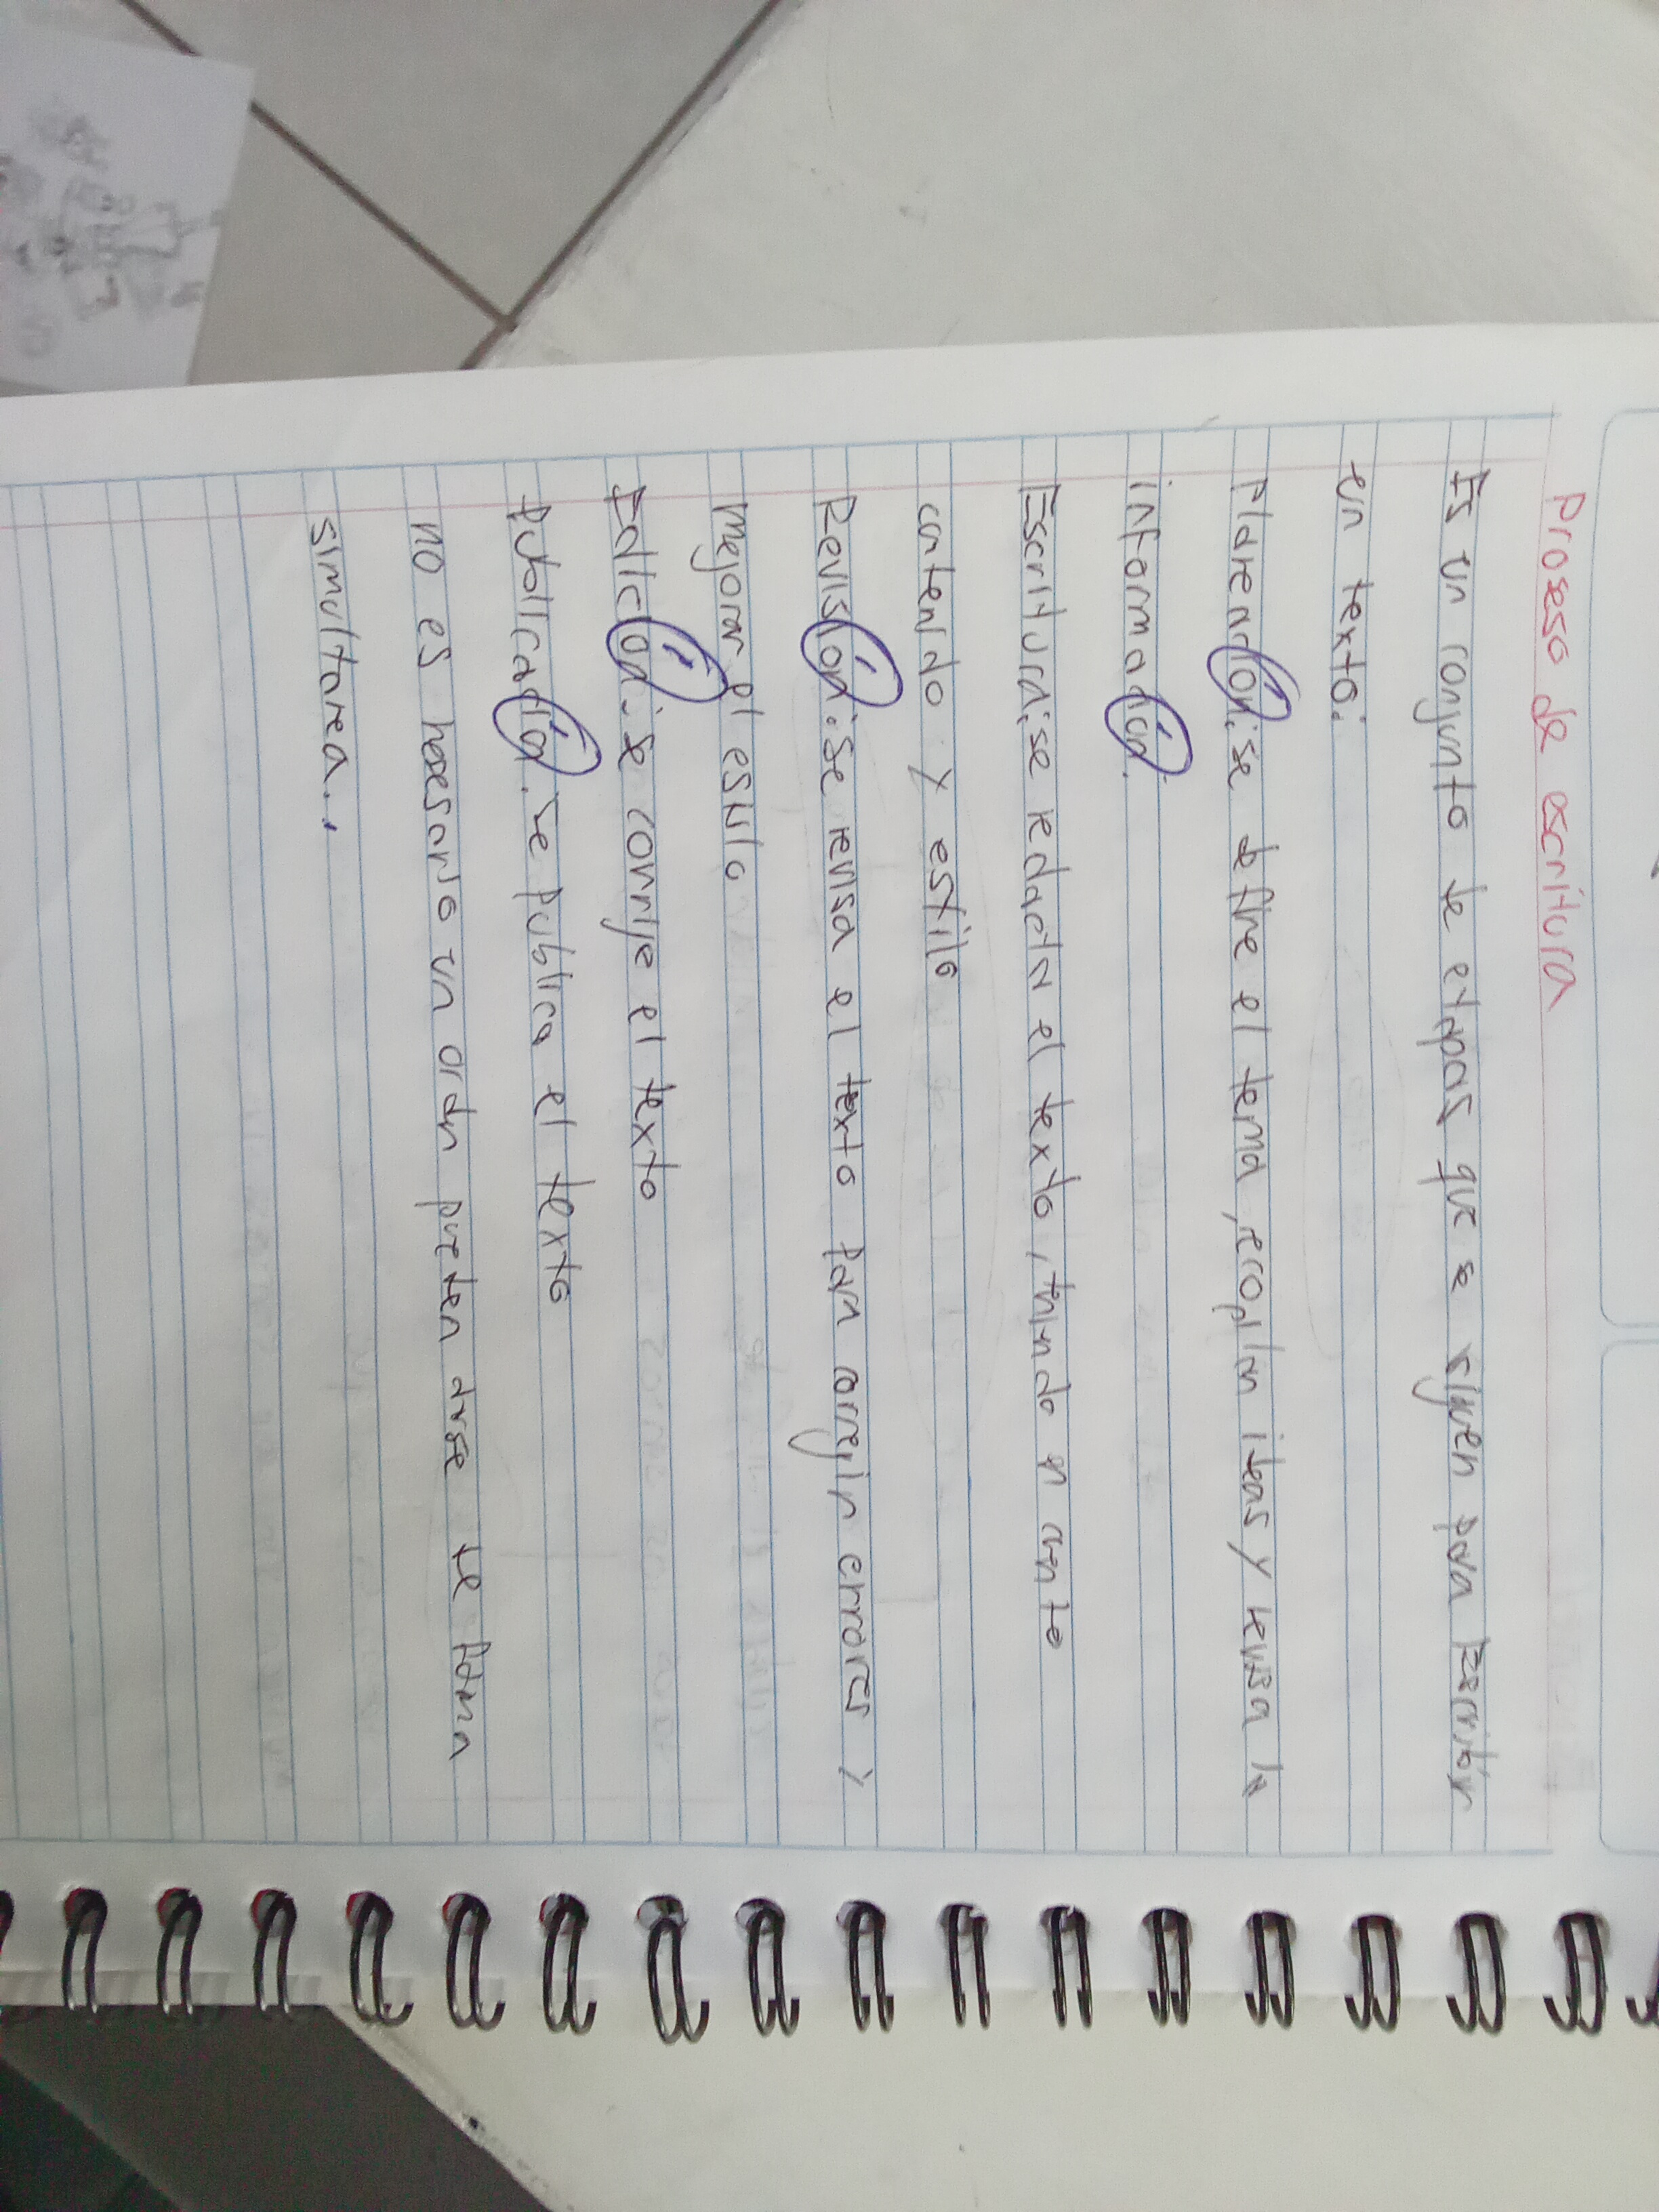 Proseso de escritura
Es un conjunto de etapas que se siguen para Escribir
un texto:
Planención: se define el tema, recopilan ideas y revisa la
información.
Escritura: se redacta el texto, teniendo en cuente
contenido y estilo
Revisión: se revisa el texto para corregir errores y
mejorar el estilo
Edición: se corrije el texto
Publicación: se publica el texto
no es nesesario un orden pueden darse de forma
simultanea.